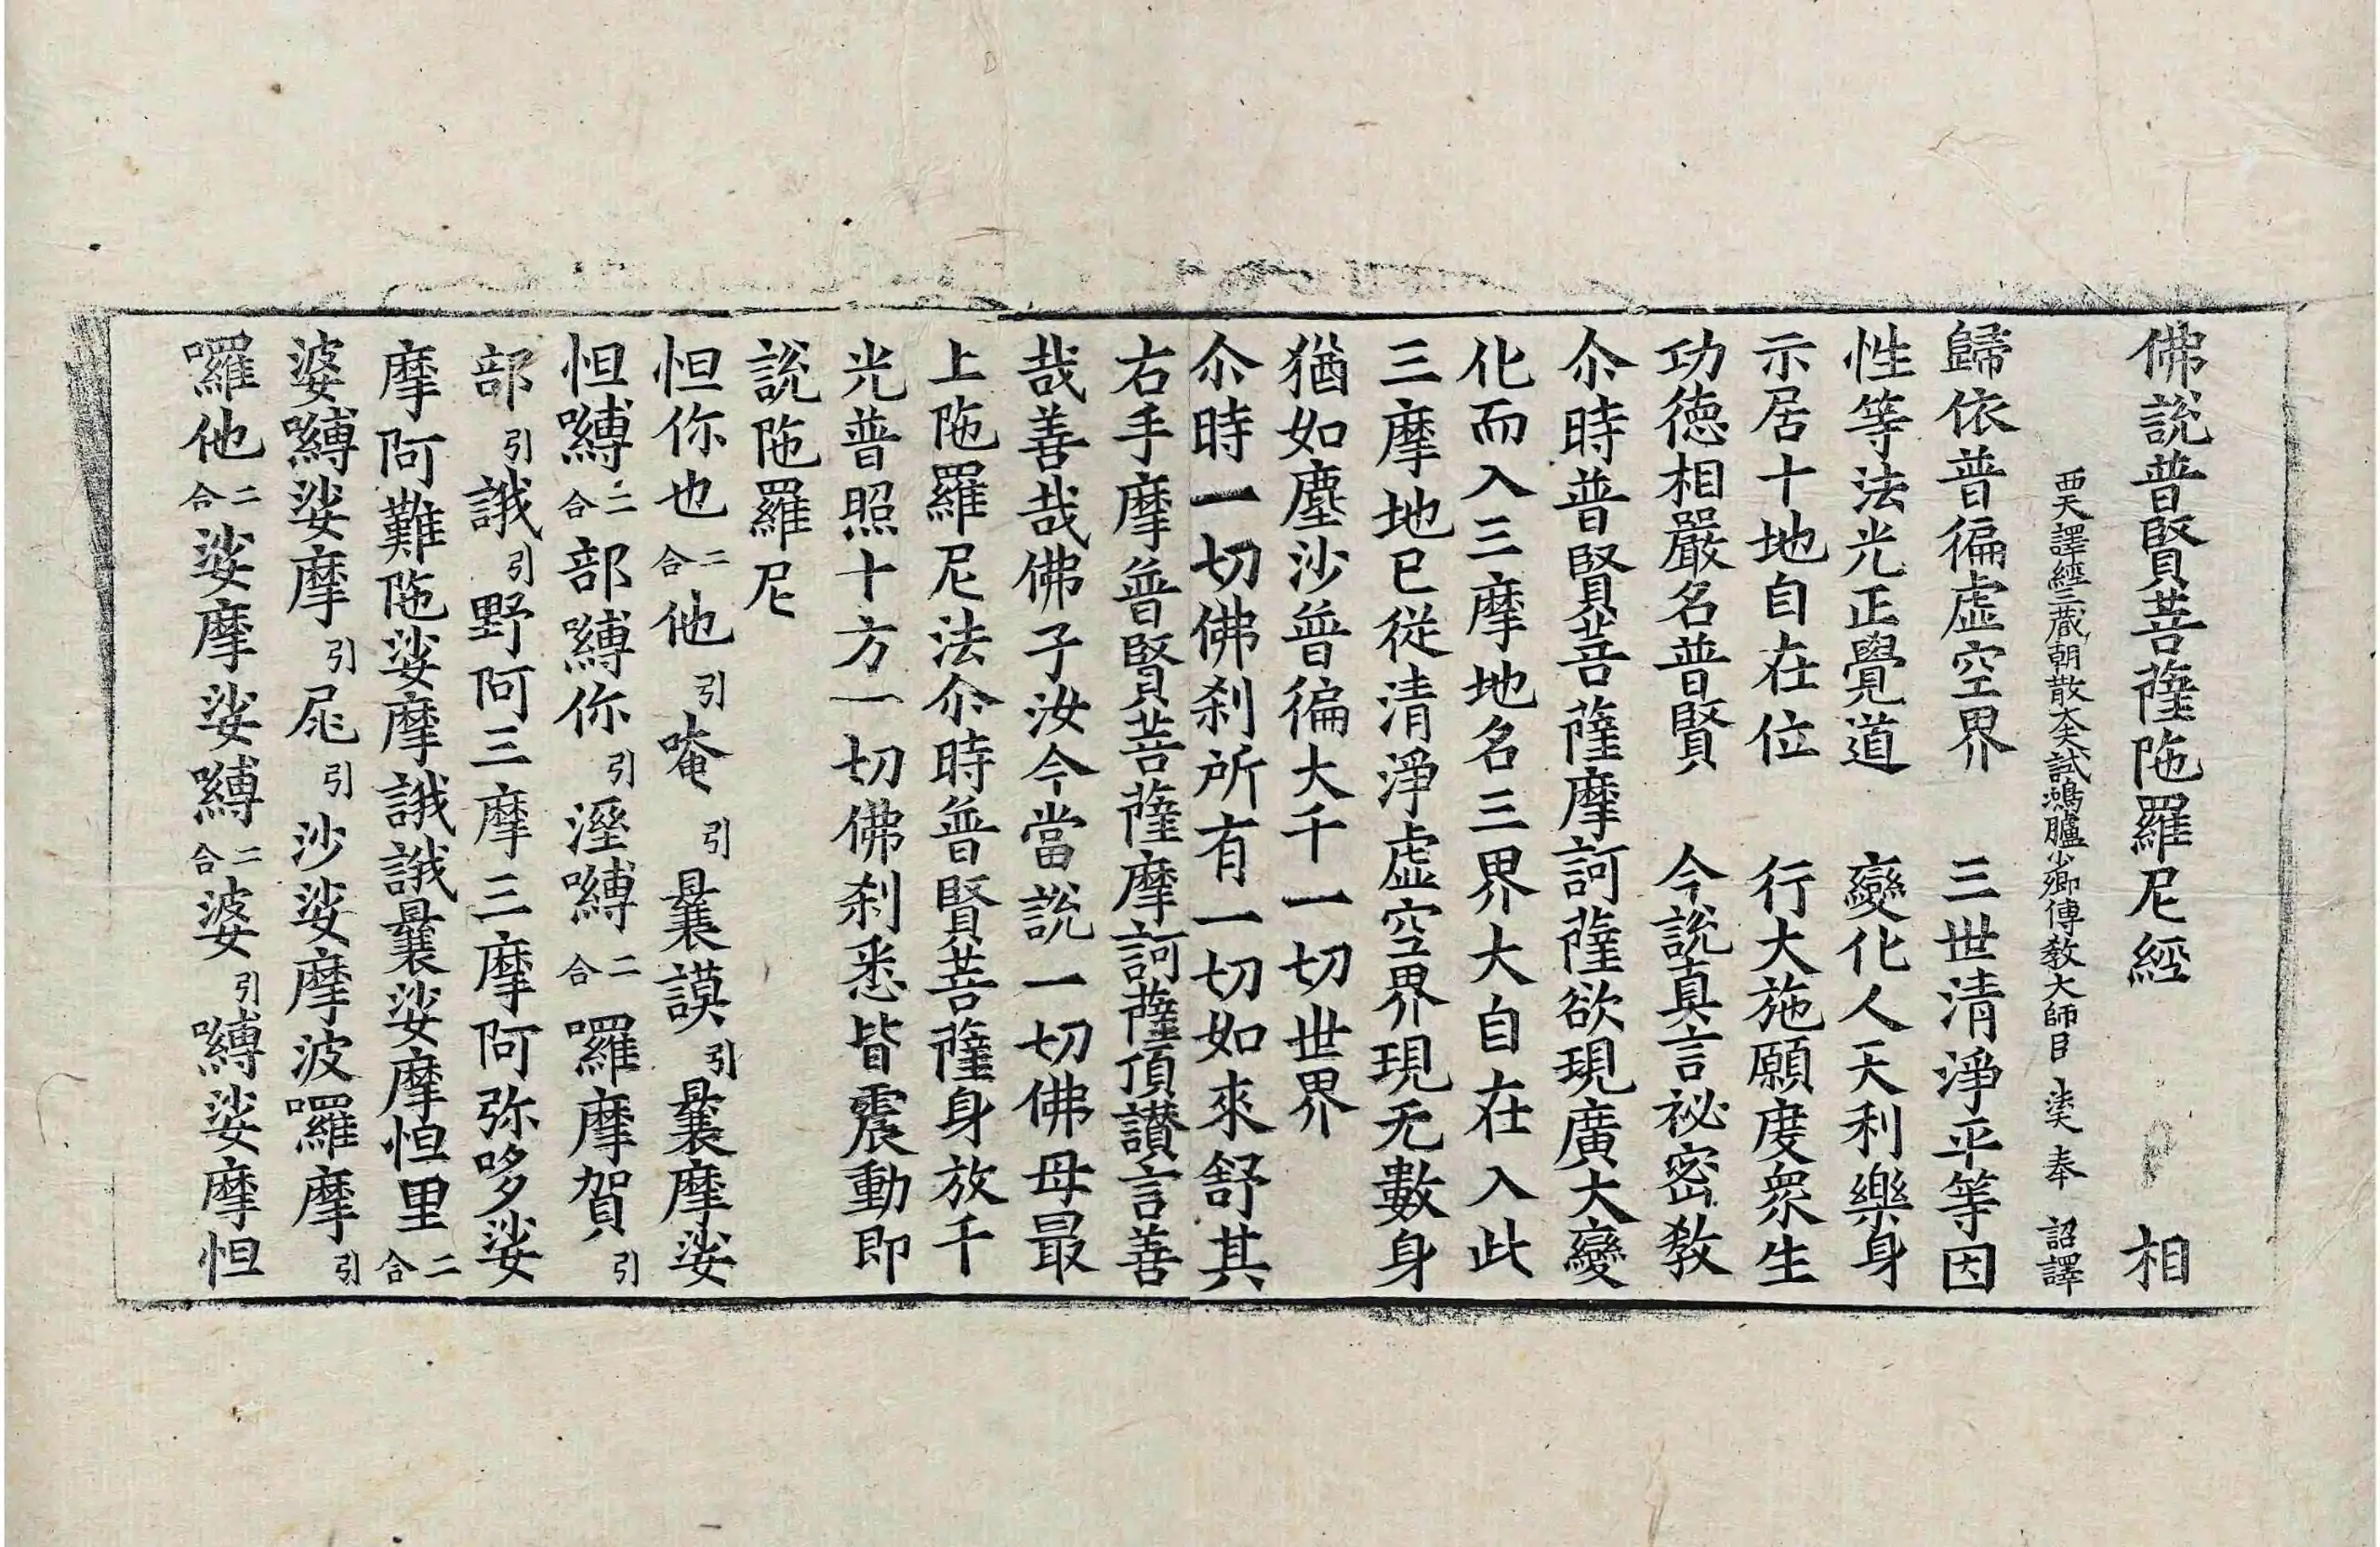 佛說普賢菩薩陁羅尼經 相
西天譯經三藏朝散大夫試鴻臚少卿傳教大師臣 法天 奉 詔譯
歸依普徧虛空界 三世清淨平等因
性等法光正覺道 變化人天利樂身
示居十地自在位 行大施願度衆生
功德相嚴名普賢 今說真言祕密教
尒時普賢菩薩摩訶薩欲現廣大變
化而入三摩地名三界大自在入此
三摩地已從清淨虛空界現无數身
猶如塵沙普徧大千一切世界
尒時一切佛刹所有一切如來舒其
右手摩普賢菩薩摩訶薩頂讃言善
哉善哉佛子汝今當說一切佛母最
上陁羅尼法尒時普賢菩薩身放千
光普照十方一切佛刹悉皆震動即
說陁羅尼
怛你也二合他引唵引曩謨引曩摩娑
怛嚩二合部嚩你引溼嚩二合囉摩賀引
部引誐引野阿三摩三摩阿弥哆娑
摩阿難陁娑摩誐誐曩娑摩怛里二合
婆嚩娑摩引屍引沙娑摩波囉摩引
囉他二合娑摩娑嚩二合婆引嚩娑摩怛